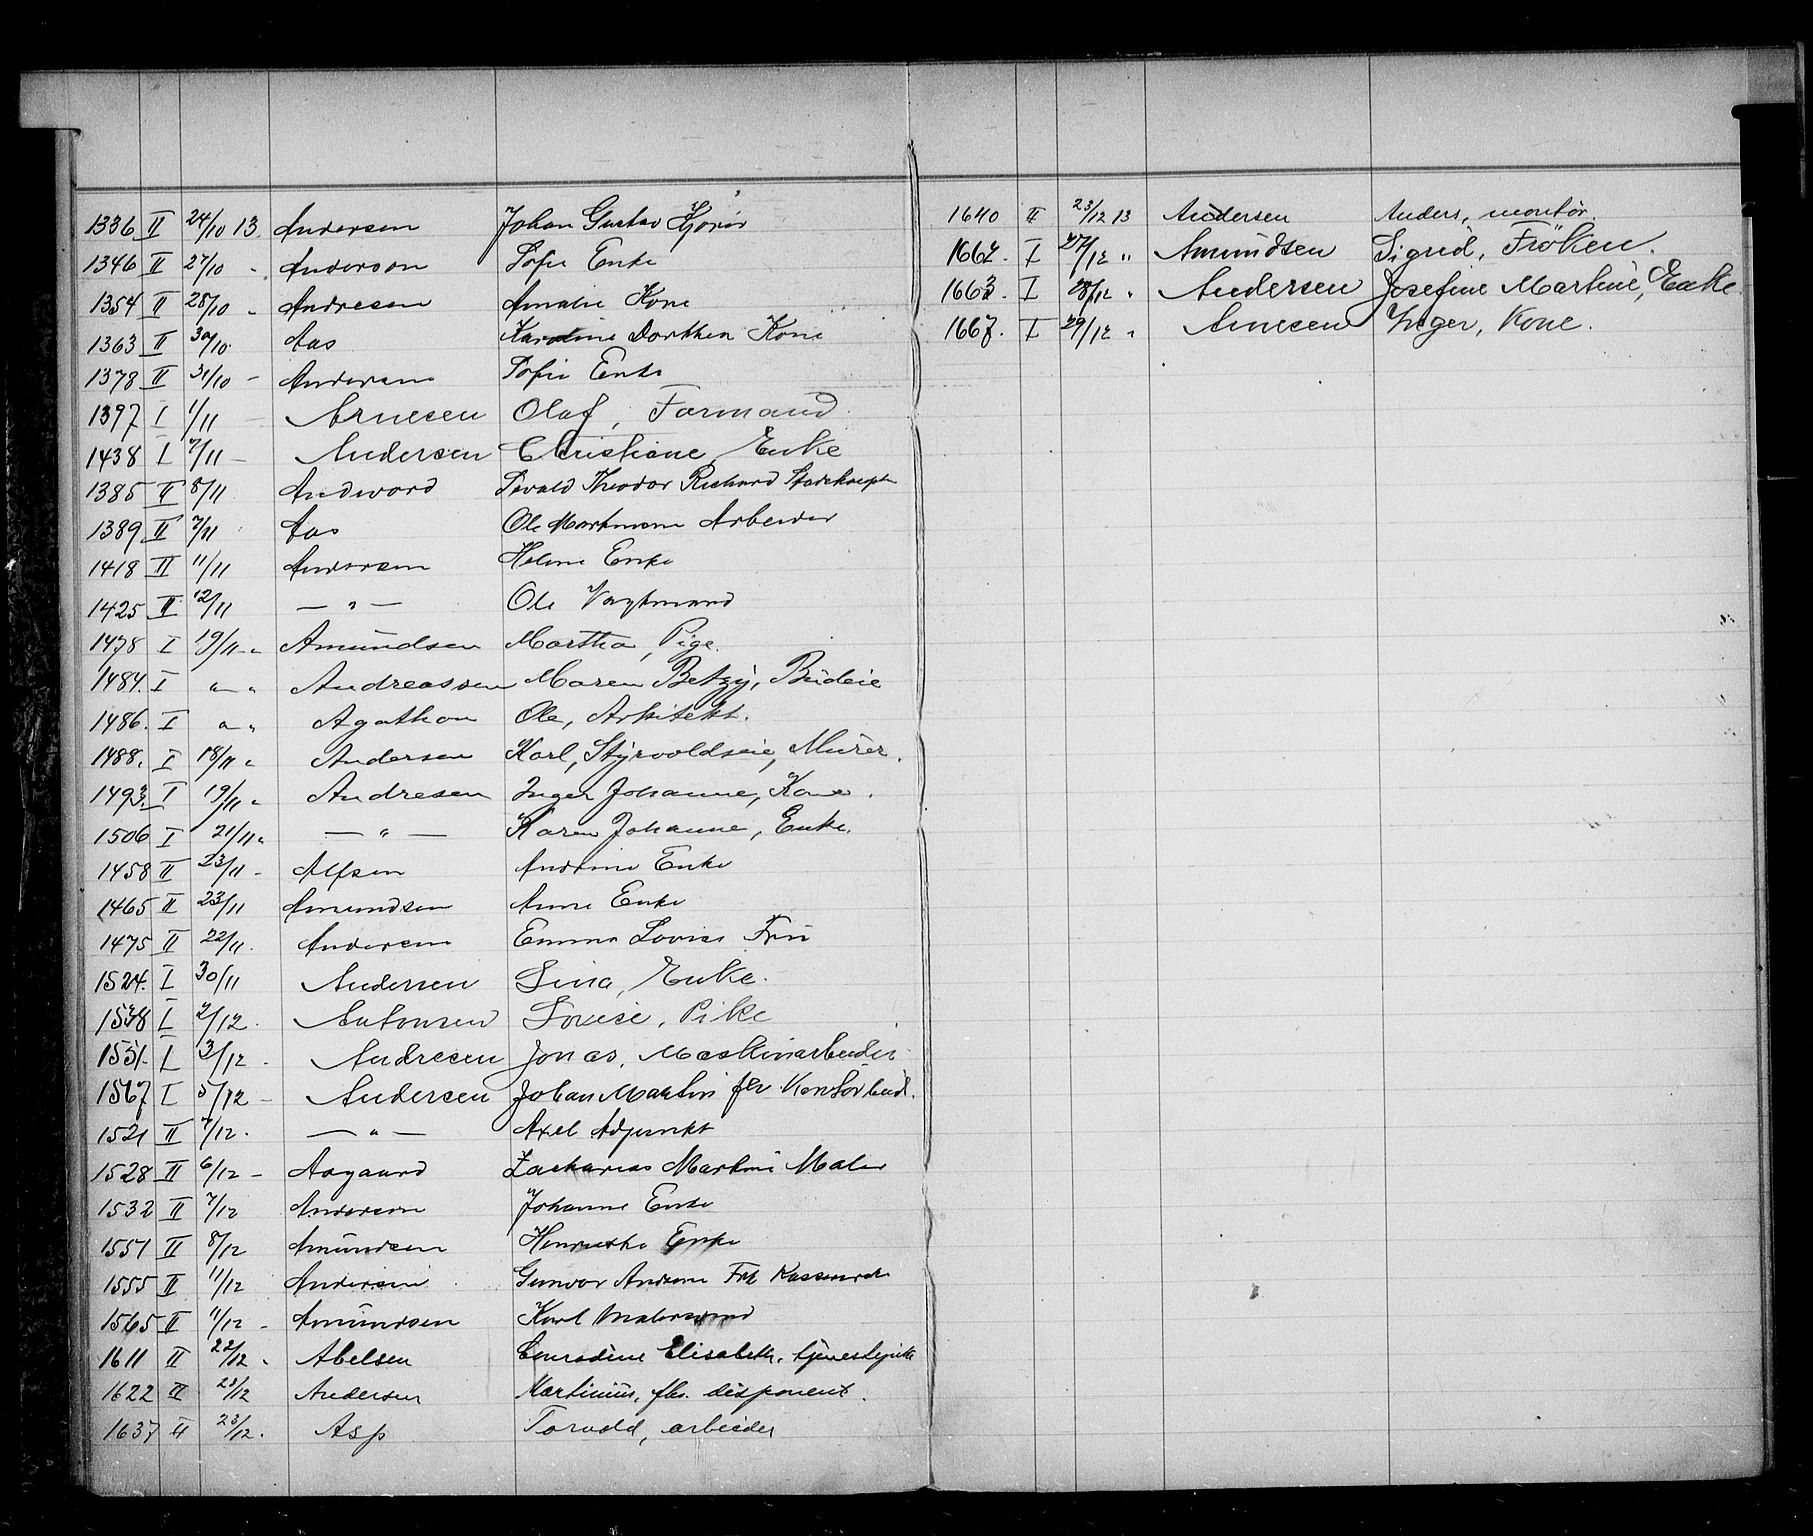 1336 II 24/10 13 Andersen Johan Gustav
1346 II 27/10 - Anderson Sofie Enke
1354 II 28/10 - Andresen Amalie Kone
1363 II 30/10 Aas Karoline Dorthea Kone
1378 II 31/10 - Andersen Sofie Enke
1397 I 1/11 Arnesen Olaf, Formand
1438 I 7/11 - Andersen Christiane Enke
1385 II 8/11 Andword Sevald Theodor Richard
1389 II 7/11 Aas Ole Martinsen Arbeider
1418 II 11/11 Andersen Helene Enke
1425 II 12/11 — " — Ole Vagtmand
1478 I 19/11 - " Amundsen Martha, Pige.
1484. I " " Andreassen Maren Betzy, Budeie
1486. I " " Agathon Ole, Arkitekt.
1488. I 18/11 " Andersen Karl, Styrvoldseie, Murer.
1493. I 19/11 " Andresen Inger Johanne, Kone.
1506 I 21/11 " — " — Karen Johanne, Enke.
1458 II 23/11 - Alfsen Andrine Enke
1465 II 23/11 Amundsen Anne Enke
1475 II 22/11. Andersen Emma Lovise Fru
1524. I 30/11 Andersen Lina, Enke.
1538 I 2/12. Antonsen Lovise, Pike
1551. I 3/12 - Andresen Jonas, Maskinarbeider
1567 I 5/12 - Andersen Johan Martin fhv Kontorbud.
1521 II 7/12. — " — Axel Adjunkt
1528 II 6/12 - Aagaard Zacharias Martin Maler
1532 II 7/12 Andersen Johanne Enke
1551 II 8/12 Amundsen Henriette Enke
1555 II 11/12 Andersen Gunvor Andrea Frk
1565 II 11/12 - Amundsen Karl Malersvend
1611 II 22/12 " Abelsen Conradine Elisabeth, tjenestepike
1622 II 23/12 Andersen Martinius, fhv. disponent.
1637 II 23/12. Asp Torvald, arbeider
1640 II 23/12 13 Andersen Anders, montör.
1662. I 27/12 " Amundsen Sigrid, Fröken.
1663. I 28/12 " Andersen Josefine Martine, Enke
1667. I 29/12 " Arnesen Inger, Kone.